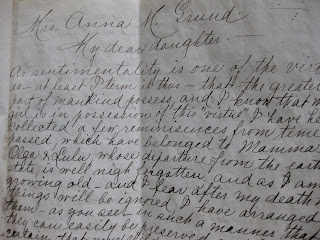 Mrs. Anna M. Grund
My dear daughter.
As sentimentality is one of the virt
es - at least I term is thus - that the greater
part of mankind possess, and I know that m
girl is in possession of this "virtue" I have he
collected a few reminisences from time
passed, which have belonged to Mamma
Olga & Lulu, whose departure from the earth
state, is well nigh forgotten, and as I am
growing old - and I fear after my death
things will be ignored, I have arranged
them - as you see in such a manner that
they can easily be preserved
certain that